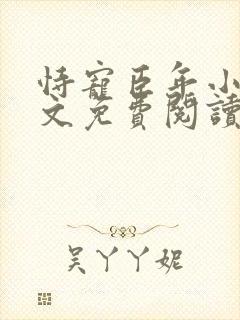 恃寵臣年小
文免費閱讀
吴丫丫妮